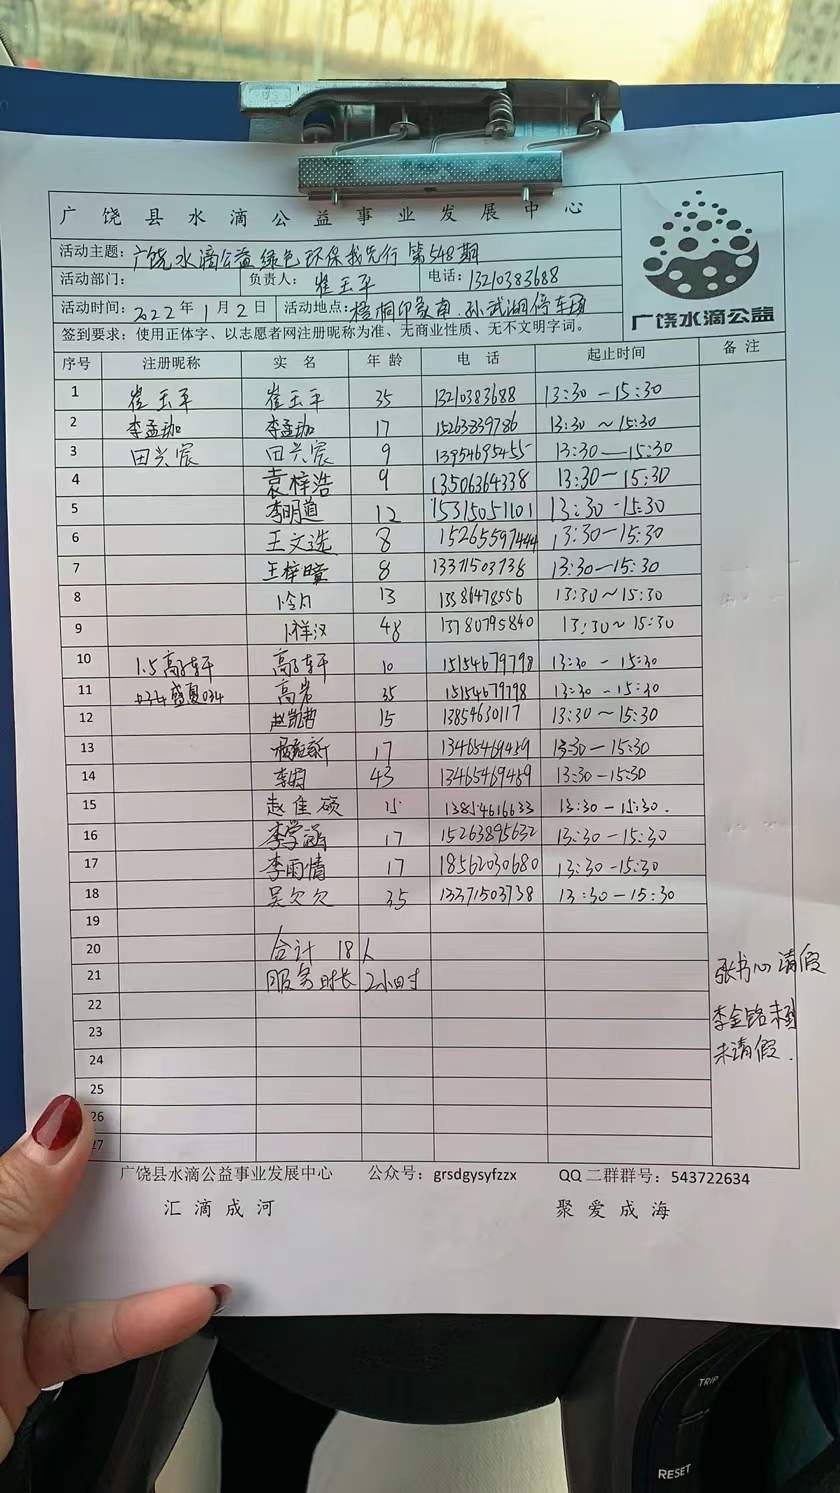 广饶县水滴公益事业发展中心
广饶水滴公益
活动主题：广饶水滴公益绿色环保我先行 第548期
活动部门： 负责人：崔玉平 电话：13210383688
活动时间：2022年1月2日 活动地点：梧桐印象南.孙武湖停车场
签到要求：使用正体字、以志愿者网注册昵称为准、无商业性质、无不文明字词。
序号 注册昵称 实名 年龄 电话 起止时间 备注
1 崔玉平 崔玉平 35 13210383688 13:30—15:30
2 李孟珈 李孟珈 17 15263839786 13:30～15:30
3 田兴宸 田兴宸 9 13954695455 13:30—15:30
4 袁梓浩 9 13506364338 13:30—15:30
5 李明道 12 15315051101 13:30-15:30
6 王文选 8 15265597444 13:30—15:30
7 王梓瞳 8 13371503738 13:30—15:30
8 13 13386478556 13:30～15:30
9 48 13780795840 13:30～15:30
10 1.5高子轩 高子轩 10 15154679798 13:30-15:30
11 034盛夏034 高岩 35 15154679798 13:30-15:30
12 赵凯哲 15 13854630117 13:30～15:30
13 17 13465469489 13:30—15:30
14 43 13465469489 13:30-15:30
15 赵佳硕 15 13854616633 13:30-15:30.
16 李学涵 17 15263895632 13:30-15:30
17 李雨情 17 18562030680 13:30-15:30
18 吴欠欠 35 13371503738 13:30—15:30
19
20 合计 18人
21 服务时长 2小时
张书心请假
22
李金铭未到
23
未请假.
24
25
26
27
广饶县水滴公益事业发展中心 公众号：grsdgysyfzzx QQ二群群号：543722634
汇滴成河 聚爱成海
TRIP
RESET